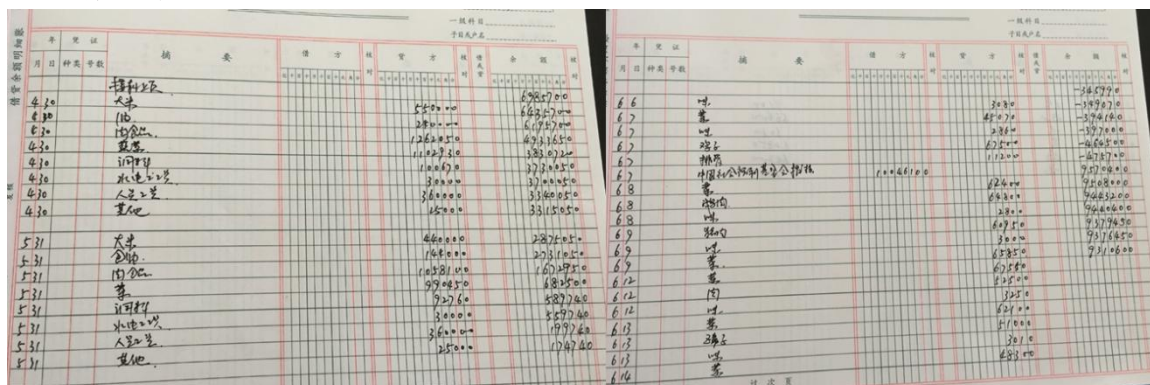 一级科目
子目或户名
借贷余额明细账
年 凭证 摘要 借方 核对 贷方 核对 借或贷 余额 核对
月 日 种类 号数
6985700
4 30 大米 550000 6435700
4 30 油 240000 6195700
4 30 肉食品 1262050 4933650
4 30 蔬菜 1102930 3830720
4 30 调料 100670 3730050
4 30 30000 3700050
4 30 人员工资 360000 3340050
4 30 其他 25000 3315050
5 31 大米 440000 2875050
5 31 144000 2731050
5 31 肉食品 1058100 1672950
5 31 菜 990450 682500
5 31 调料 92760 589740
5 31 30000 559740
5 31 人员工资 360000 199740
5 31 其他 25000 174740
一级科目
子目或户名
年 凭证 摘要 借方 核对 贷方 核对 借或贷 余额 核对
月 日 种类 号数
-345990
6 6 3080 -349070
6 7 菜 45070 -394140
6 7 2860 -397000
6 7 67500 -464500
6 7 排骨 11200 -475700
6 7 中国社会福利基金会 10046100 9570400
6 8 菜 62400 9508000
6 8 64800 9443200
6 8 2800 9440400
6 9 60950 9379450
6 9 3000 9376450
6 9 菜 65850 9310600
6 12 67550
6 12 肉 52500
6 12 3250
6 13 菜 62100
6 13 51000
6 13 3010
6 14 菜 48300
过次页